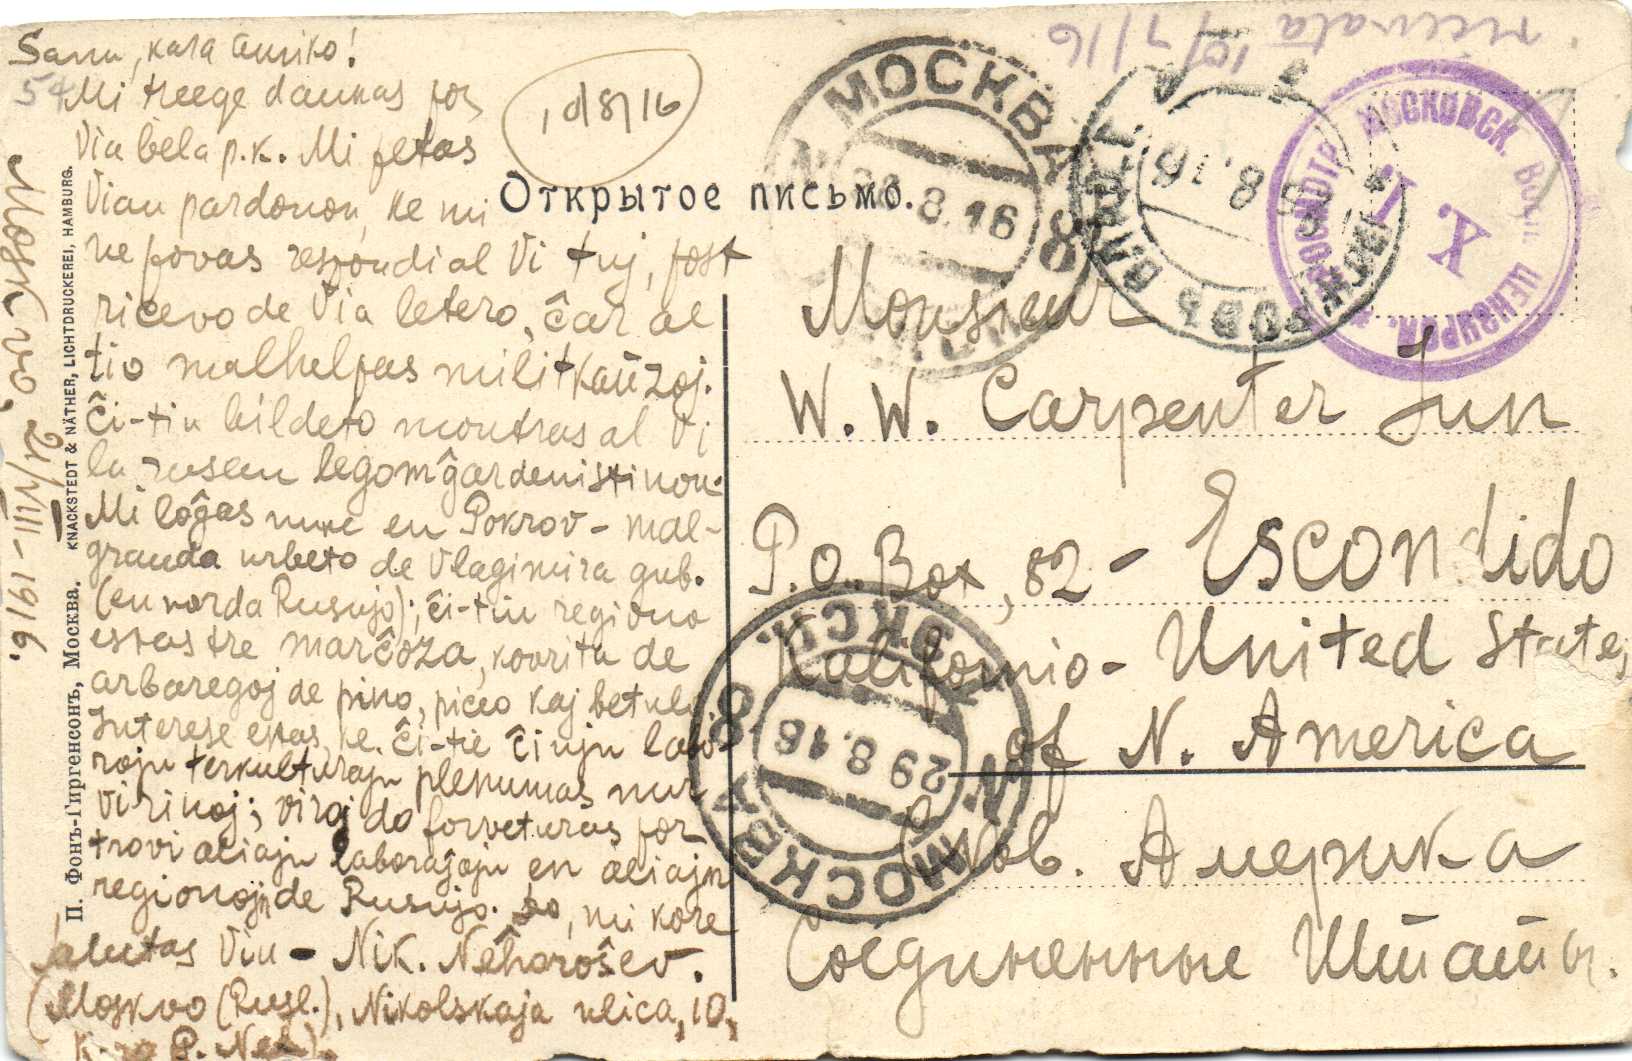 Sanu, kara amiko!
54 Mi treege dankas por
Via bela p.k. Mi petas
Vian pardonon, ke mi
ne povas respondi al Vi tuj, post
ricevo de Via letero, ĉar al
tio malhelpas militkaŭzoj.
Ĉi-tiu bildeto montras al Vi
la rusan legomĝardenistinon.
Mi loĝas nun en Pokrov - mal-
granda urbeto de Vlagimira gub.
(en norda Rusujo); ĉi-tiu regiono
estas tre marĉoza, kovrita de
arbaregoj de pino, piceo kaj betulo
Interese estas, ke ĉi-tie ĉiujn labo-
rojn terkulturajn plenumas nur
virinoj; viroj do forveturas por
trovi aliajn laboraĵojn en aliajn
regionojn de Rusujo. mi kore
salutas Vin - Nik. Neĥoroŝev.
(Moskvo (Rusl.), Nikolskaja ulica, 10,
P. Neĥ).
Moskvo, 21/VIII-1916.
П. Фонъ-Гиргенсонъ, Москва. KNACKSTEDT & NÄTHER, LICHTDRUCKEREI, HAMBURG.
10/8/16
ricevata 10/7/16
Открытое письмо.
МОСКВА
8.16
8
МОСКОВСК. ВОЕН. ЦЕНЗУРН.
X. I.
8.16
Monsieur
W. W. Carpenter Jun
P.O. Box, 82 - Escondido
Kalifornio - United States
of N. America
Сѣв. Америка
Соединенные Штаты.
МОСКВА
29.8.16
8
ЭКСП.